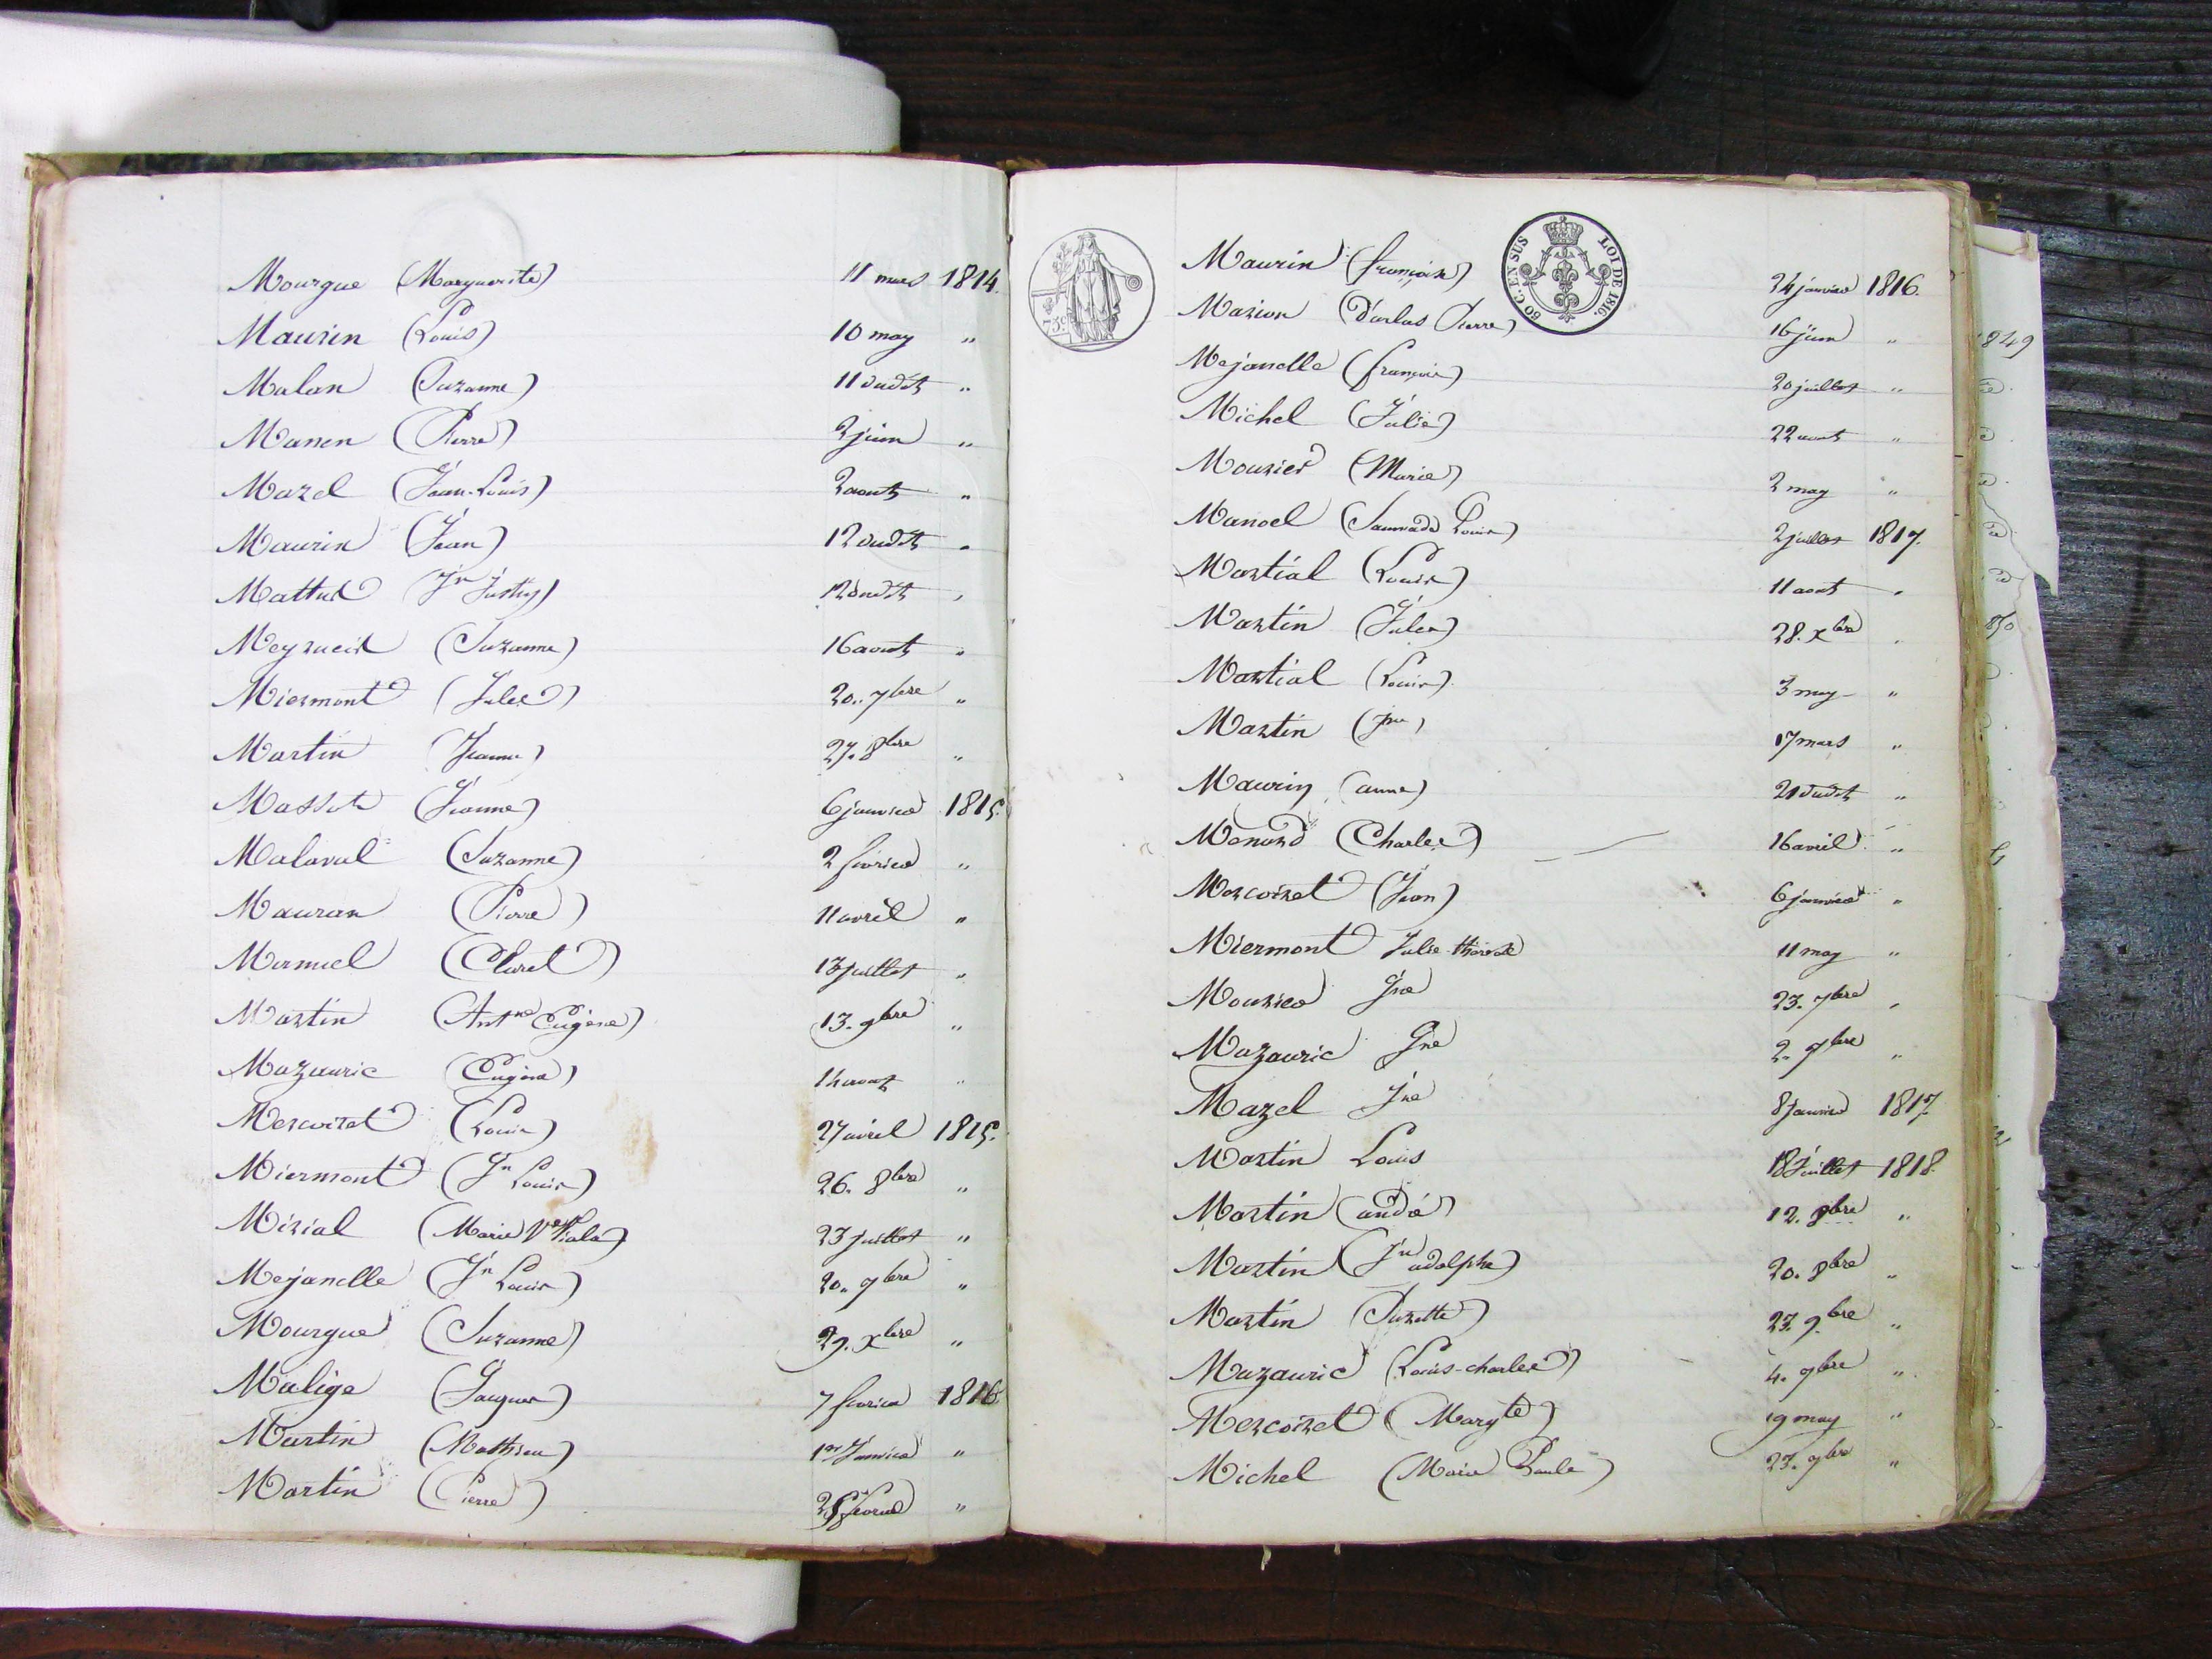 Mourgue (Marguerite) 11 mars 1814.
Maurin (Louis) 10 may "
Malan (Suzanne) 11 dudit "
Manen (Pierre) 2 juin "
Mazel (Jean-Louis) 2 aout "
Maurin (Jean) 12 dudit "
12 dudit "
(Suzanne) 16 aout "
Miermont (Jules) 20. 7bre "
Martin (Jeanne) 27. 8bre "
(Jeanne) 6 janvier 1815.
Malaval (Suzanne) 2 février "
Mauran (Pierre) 11 avril "
(Claret) 13 juillet "
Martin (Antne Eugène) 13. 9bre "
Mazauric (Eugène) 14 aout "
Mercoiret (Louis) 27 avril 1815.
Miermont (Jn Louis) 26. 8bre "
Mirial (Marie Ve Viala) 23 juillet "
Mejanelle (Jn Louis) 20. 9bre "
Mourgue (Suzanne) 29. Xbre "
Malige (Jacques) 7 février 1816
Martin (Mathieu) 1er Janvier "
Martin (Pierre) "
75c
60 C. EN SUS LOI DE 1816.
Maurin (françois) 24 janvier 1816.
Marion (Pierre) 16 juin "
Mejanelle (françois) 20 juillet "
Michel (Julie) 22 aout "
Mourier (Marie) 2 may "
Manoel (Louis) 2 juillet 1817.
Martial (Louis) 11 aout "
Martin (Jules) 28. Xbre "
Martial (Louis) 3 may "
Martin 17 mars "
Maurin (anne) 21 dudit "
Menard (Charles) 16 avril "
Mercoiret (Jean) 6 janvier "
Miermont Julie 11 may "
Mourier Jne 23. 7bre "
Mazauric Jne 2. 7bre "
Mazel Jne 8 janvier 1817
Martin Louis 18 Juillet 1818.
Martin (andré) 12. 8bre "
Martin (Jn adolphe) 20. 8bre "
Martin (Suzette) 27. 9bre "
Mazauric (Louis-charles) 4. 9bre "
Mercoiret (Margte) 19 may "
Michel (Marie Paule) 23. 9bre "
849